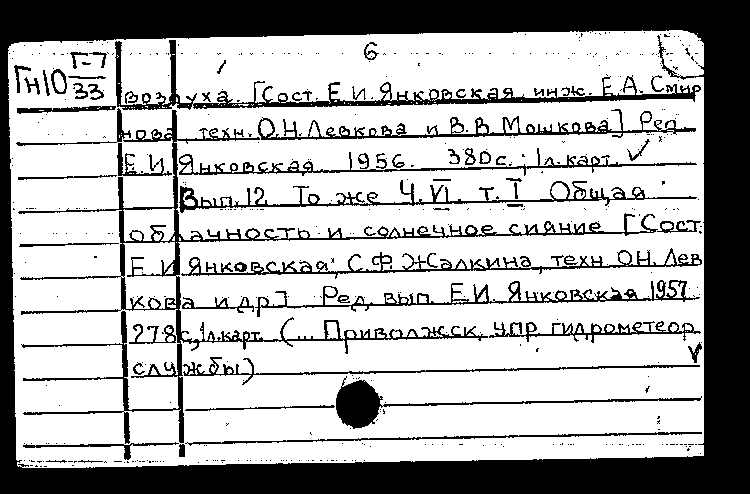 6
Гн10 Г-7/33
воздуха. [Сост. Е.И. Янковская, инж. Е.А. Смир
нова, техн. О.Н. Левкова и В.В. Мошкова] Ред.
Е.И. Янковская 1956. 380с.; 1л.карт. ✓
Вып.12. То же Ч.VI. т.I Общая
облачность и солнечное сияние [Сост.
Е.И Янковская, С.Ф. Жалкина, техн О.Н. Лев
кова и др] Ред. вып. Е.И. Янковская 1957
278с, 1л.карт. (... Приволжск. упр гидрометеор.
службы) ✓